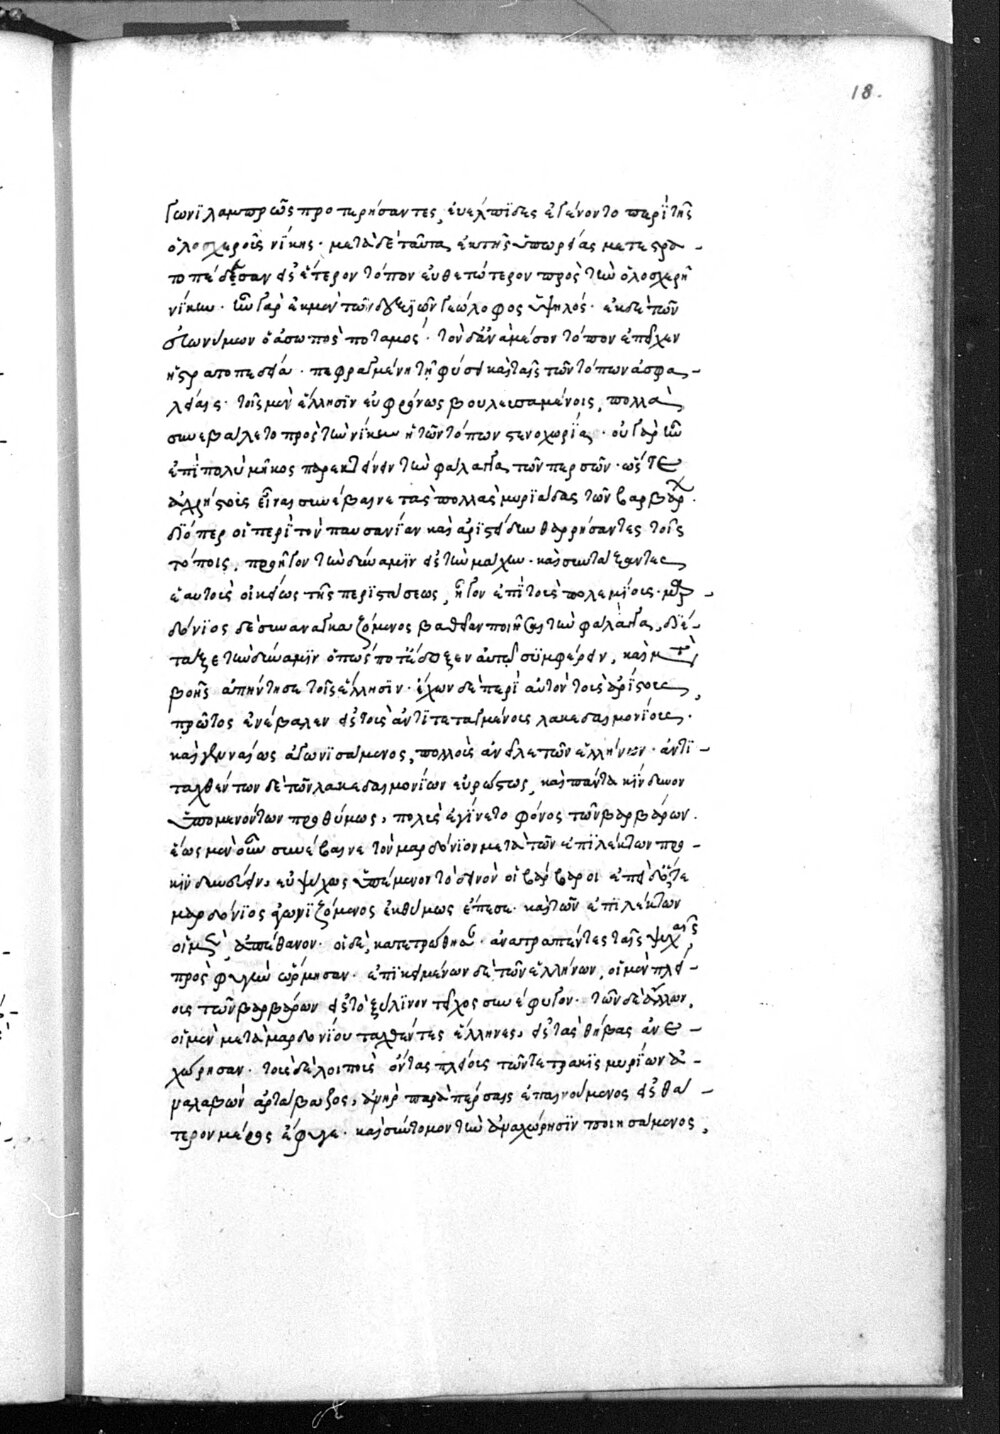 18.
γωνϊ λαμπρῶς προτερήσαντες, εὐέλπϊδες ἐγένοντο περὶ τῆς
ὁλοσχεροῦς νίκης. μετὰ δὲ ταῦτα ἐκ τῆς ὑπωρείας μετεστρα-
τοπέδευσαν εἰς ἕτερον τόπον εὐθετώτερον πρὸς τὴν ὁλοσχερῆ
νίκην. ἦν γὰρ ἐκ μὲν τῶν δεξιῶν γεώλοφος ὑψηλός. ἐκ δὲ τῶν
εὐωνύμων ὁ ἀσωπὸς ποταμός. τὸν δ' ἀνὰ μέσον τόπον ἐπεῖχεν
ἡ στρατοπεδεία. πεφραγμένη τῇ φύσει καὶ ταῖς τῶν τόπων ἀσφα-
λείαις. τοῖς μὲν ἕλλησϊν ἐμφρόνως βουλευσαμένοις, πολλὰ
συνεβάλετο πρὸς τὴν νίκην ἡ τῶν τόπων στενοχωρία. οὐ γὰρ ἦν
ἐπὶ πολὺ μῆκος παρεκτείνειν τὴν φάλαγγα τῶν περσῶν. ὥστε
ἀχρήστους εἶναι συνέβαινε τὰς πολλὰς μυρϊάδας τῶν βαρβάρ.
διόπερ οἱ περὶ τὸν παυσανίαν καὶ ἀρϊστείδην θαρρήσαντες τοῖς
τόποις, προῆγον τὴν δύναμϊν εἰς τὴν μάχην. καὶ συντάξαντες
ἑαυτοὺς οἰκείως τῆς περιστάσεως, ἦγον ἐπὶ τοὺς πολεμίους. μαρ-
δόνϊος δὲ συναναγκαζόμενος βαθεῖαν ποιῆσαι τὴν φάλαγγα, διέ-
ταξε τὴν δύναμϊν ὅπως ποτ' ἔδοξεν αὐτῷ συμφέρειν, καὶ μετὰ
βοῆς ἀπήντησε τοῖς ἕλλησϊν. ἔχων δὲ περὶ αὐτὸν τοὺς ἀρίστους,
πρῶτος ἐνέβαλεν εἰς τοὺς ἀντϊτεταγμένους λακεδαιμονίους.
καὶ γενναίως ἀγωνϊσάμενος, πολλοὺς ἀνεῖλε τῶν ἑλλήνων. ἀντϊ-
ταχθέντων δὲ τῶν λακεδαιμονίων εὐρώστως, καὶ πάντα κίνδυνον
ὑπομενόντων προθύμως, πολὺς ἐγίνετο φόνος τῶν βαρβάρων.
ἕως μὲν οὖν συνέβαινε τὸν μαρδόνϊον μετὰ τῶν ἐπϊλέκτων προ-
κϊνδυνεύειν, εὐψύχως ὑπέμενον τὸ δεινὸν οἱ βάρβαροι ἐπεὶ δ' ὅ,τε
μαρδόνϊος ἀγωνϊζόμενος ἐκθύμως ἔπεσε. καὶ τῶν ἐπϊλέκτων
οἱ μὲν, ἀπέθανον. οἱ δὲ, κατετρώθησαν. ἀνατραπέντες ταῖς ψυχαῖς
πρὸς φυγὴν ὥρμησαν. ἐπϊκειμένων δὲ τῶν ἑλλήνων, οἱ μὲν πλεί-
ους τῶν βαρβάρων εἰς τὸ ξύλϊνον τεῖχος συνέφυγον. τῶν δὲ ἄλλων,
οἱ μὲν μετὰ μαρδονίου ταχθέντες ἕλληνες, εἰς τὰς θήβας ἀνε-
χώρησαν. τοὺς δὲ λοιποὺς ὄντας πλείους τῶν τετρακϊσμυρίων ἀ-
ναλαβὼν ἀρτάβαζος, ἀνὴρ παρὰ πέρσαις ἐπαινούμενος εἰς θά-
τερον μέρος ἔφυγε. καὶ σύντομον τὴν ἀναχώρησϊν ποιησάμενος,